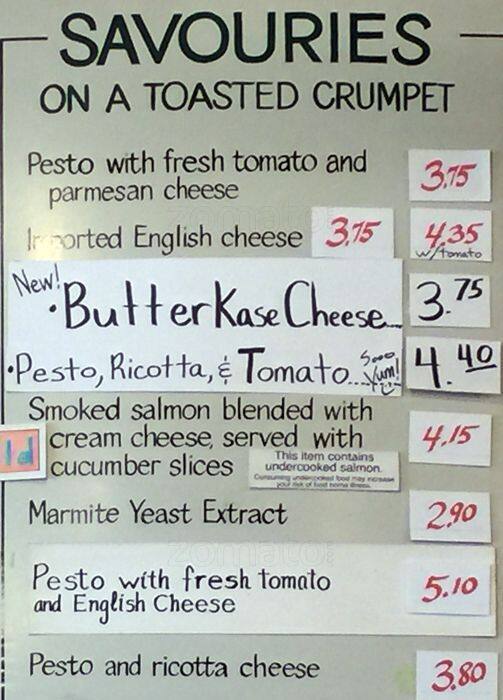 SAVOURIES
ON A TOASTED CRUMPET
Pesto with fresh tomato and 3.75
parmesan cheese
Imported English cheese 3.75 4.35
w/tomato
New!
• ButterKase Cheese... 3.75
• Pesto, Ricotta, & Tomato... Sooo Yum! 4.40
Smoked salmon blended with
cream cheese, served with 4.15
cucumber slices
This item contains
undercooked salmon.
Consuming undercooked food may increase
your risk of food borne illness.
Marmite Yeast Extract 2.90
Pesto with fresh tomato 5.10
and English Cheese
Pesto and ricotta cheese 3.80
zomato
zomato